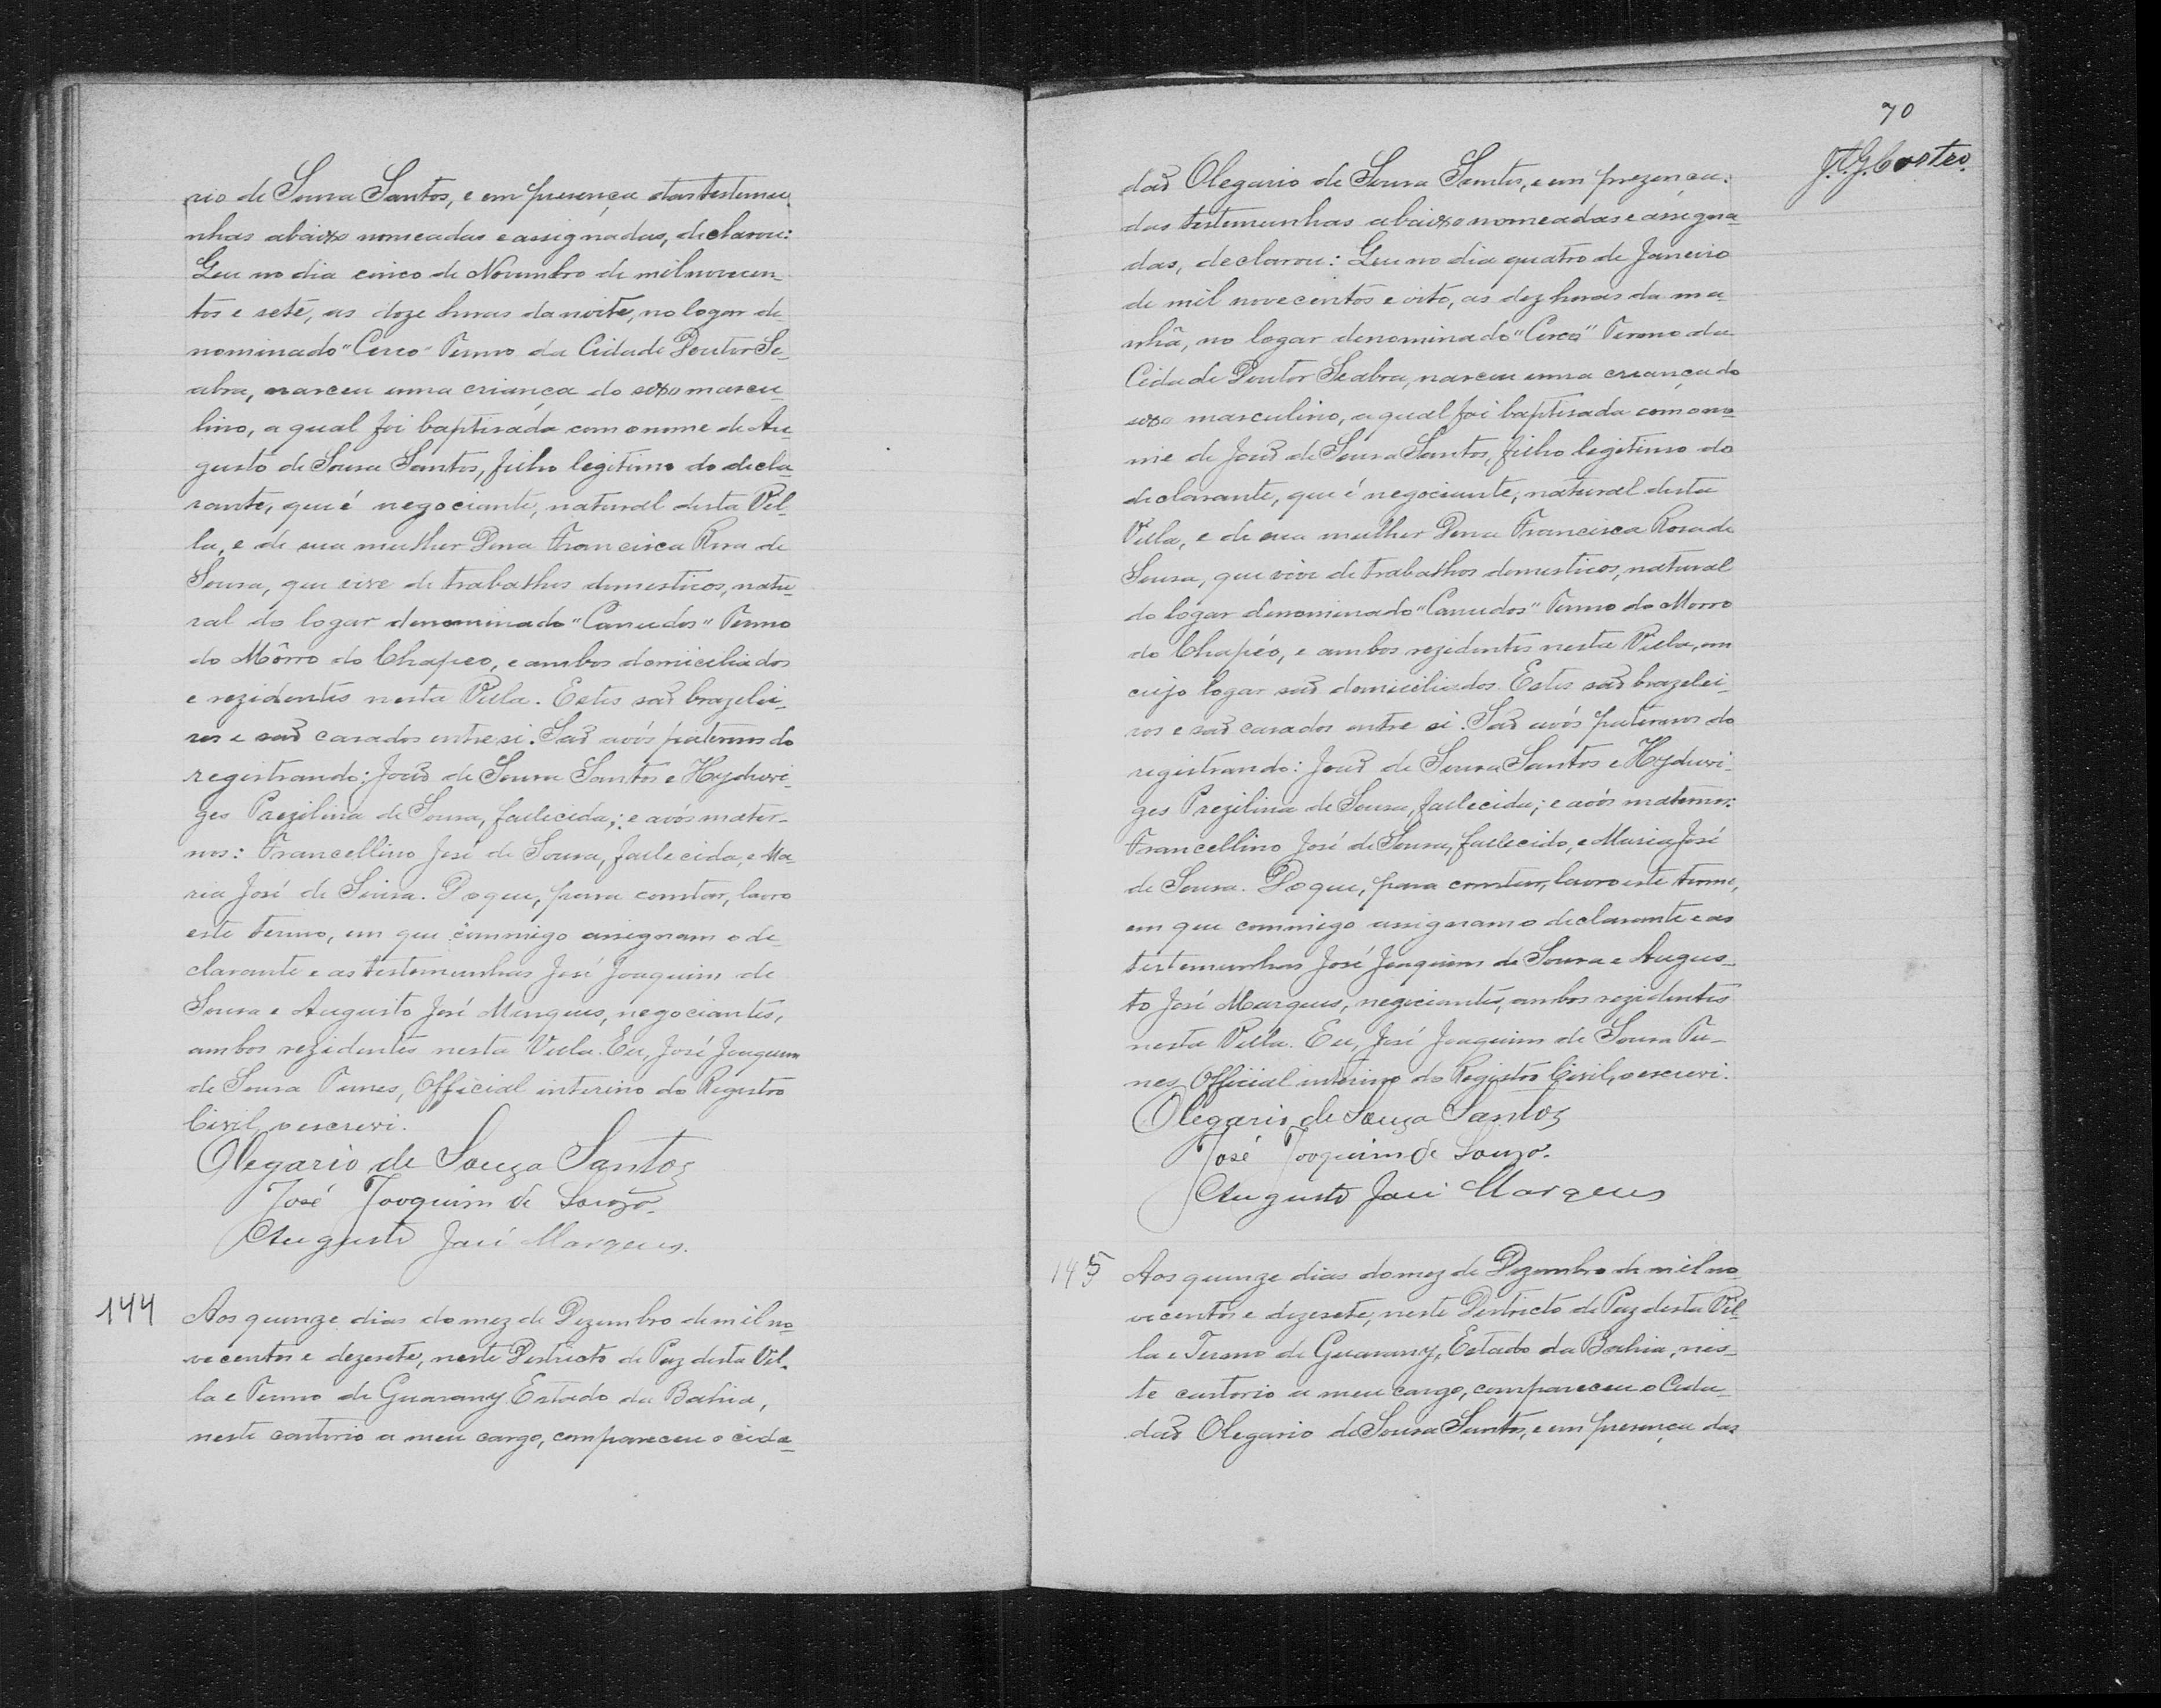 rio de Sousa Santos, e em presença das testemu-
nhas abaixo nomeadas e assignadas, declarou:
Que no dia cinco de Novembro de mil novecen-
tos e sete, as doze horas da noite, no logar de-
nominado "Cerco" Termo da Cidade Doutor Se-
abra, nasceu uma criança do sexo mascu-
lino, a qual foi baptisada com o nome de Au-
gusto de Sousa Santos, filho legitimo do decla-
rante, que é negociante, natural desta Vil-
la, e de sua mulher Dona Francisca Rosa de
Sousa, que vive de trabalhos domesticos, natu-
ral do logar denominado "Canudos" Termo
do Môrro do Chapeo, e ambos domiciliados
e rezidentes nesta Villa. Estes são brazelei-
ros e são casados entre si. São avós paternos do
registrando: João de Sousa Santos e Hyduvi-
ges Prezilina de Sousa, fallecida; e avós mater-
nos: Francellino José de Sousa, fallecido, e Ma-
ria José de Sousa. Do que, para constar, lavro
este termo, em que commigo assignam o de-
clarante e as testemunhas José Joaquim de
Sousa e Augusto José Marques, negociantes,
ambos rezidentes nesta Villa. Eu, José Joaquim
de Sousa Tunes, Official interino do Registro
Civil, o escrevi.
Olegario de Souza Santos
José Joaquim de Souza.
Augusto José Marques.
144 Aos quinze dias do mez de Dezembro de mil no-
vecentos e dezesete, neste Destricto de Paz desta Vil-
la e Termo de Guarany Estado da Bahia,
neste cartorio a meu cargo, compareceu o cida-
70
J.A.G. Castro.
dão Olegario de Sousa Santos, e em prezença:
das testemunhas abaixo nomeadas e assigna-
das, declarou: Que no dia quatro de Janeiro
de mil novecentos e oito, as dez horas da ma-
nhã, no logar denominado "Cerco" Termo da
Cidade Doutor Seabra, nasceu uma criança do
sexo masculino, a qual foi baptisada com o no-
me de João de Sousa Santos, filho legitimo do
declarante, que é negociante, natural desta
Villa, e de sua mulher Dona Francisca Rosa de
Sousa, que vive de trabalhos domesticos, natural
do logar denominado "Canudos" Termo do Morro
do Chapéo, e ambos rezidentes nesta Villa, em
cujo logar são domiciliados. Estes são brazelei-
ros e são casados entre si. São avós paternos do
registrando: João de Sousa Santos e Hyduvi-
ges Prezilina de Sousa, fallecida; e avós maternos:
Francellino José de Sousa, fallecido, e Maria José
de Sousa. Do que, para constar, lavro este termo,
em que commigo assignam o declarante e as
testemunhas José Joaquim de Sousa e Augus-
to José Marques, negociantes, ambos rezidentes
nesta Villa. Eu, José Joaquim de Sousa Tu-
nes, Official interino do Registro Civil, o escrevi.
Olegario de Souza Santos
José Joaquim de Souza.
Augusto José Marques
145 Aos quinze dias do mez de Dezembro de mil no-
vecentos e dezesete, neste Destricto de Paz desta Vil-
la e Termo de Guarany, Estado da Bahia, nes-
te cartorio a meu cargo, compareceu o Cida-
dão Olegario de Sousa Santos, e em presença das